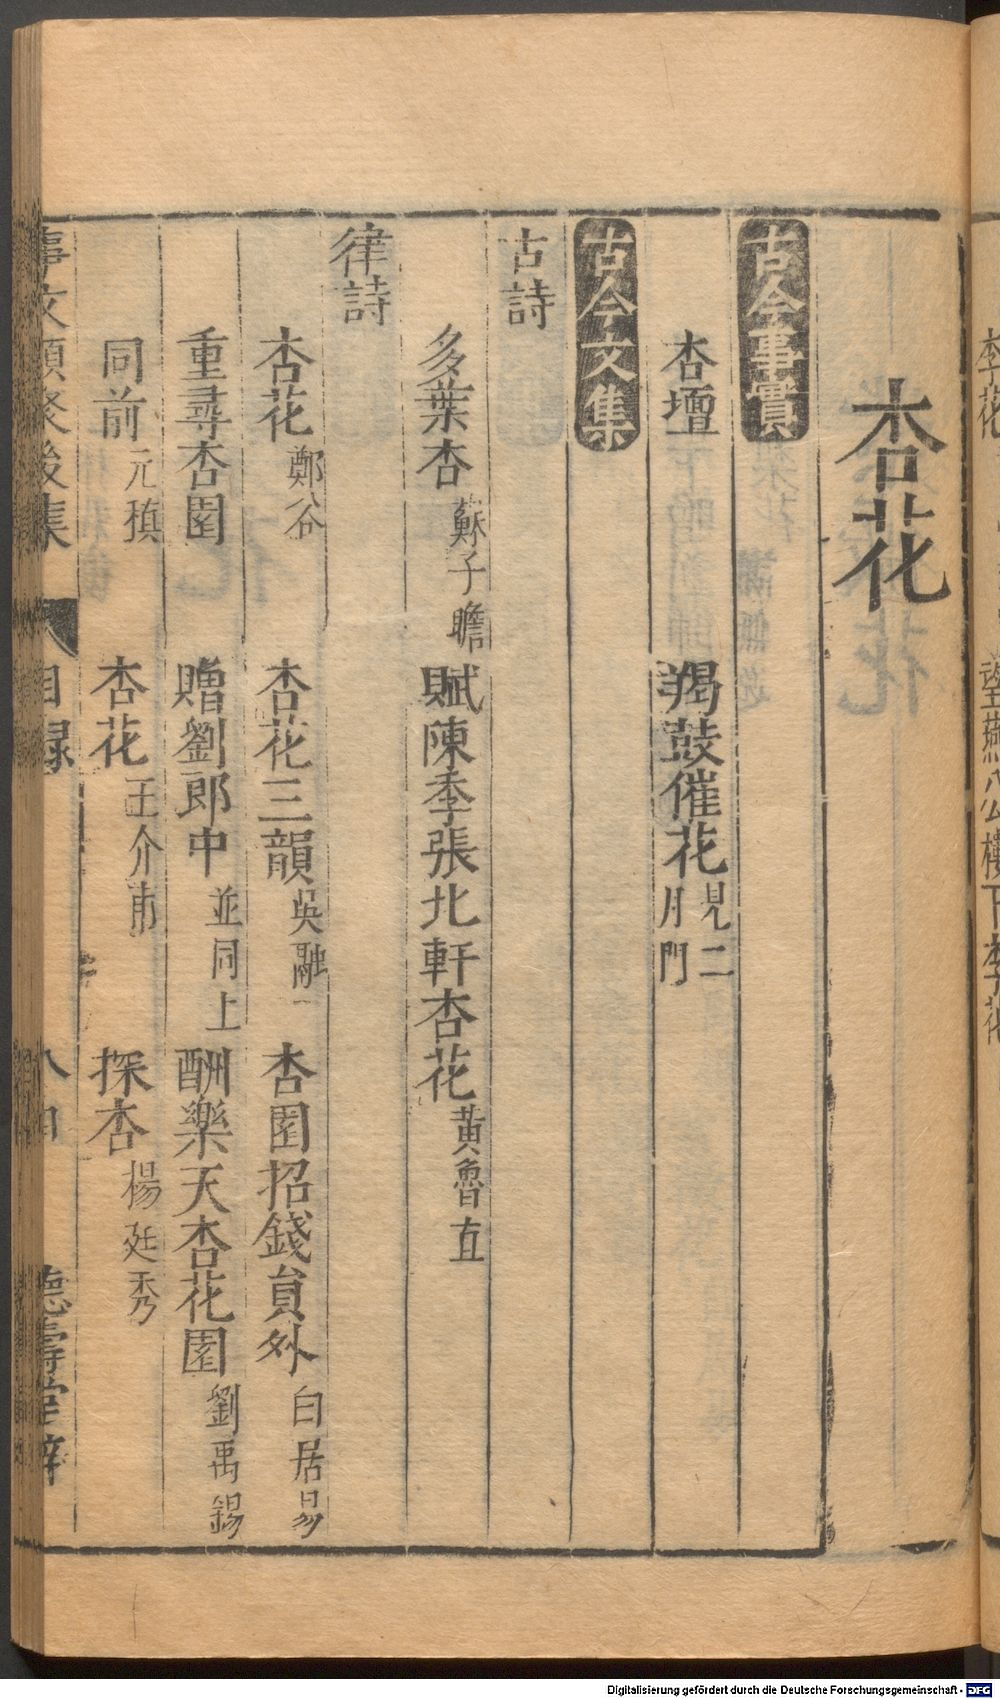 杏花
古今事實
杏壇 羯鼓催花見二月門
古今文集
古詩
多葉杏蘇子瞻 賦陳季張北軒杏花黃魯直
律詩
杏花鄭谷 杏花三韻吳融 杏園招錢員外白居易
重尋杏園 贈劉郎中並同上 酬樂天杏花園劉禹錫
同前元稹 杏花王介甫 探杏楊廷秀
事文類聚後集 目録 德壽堂梓
李花
望燕公樓下李花
Digitalisierung gefördert durch die Deutsche Forschungsgemeinschaft - DFG